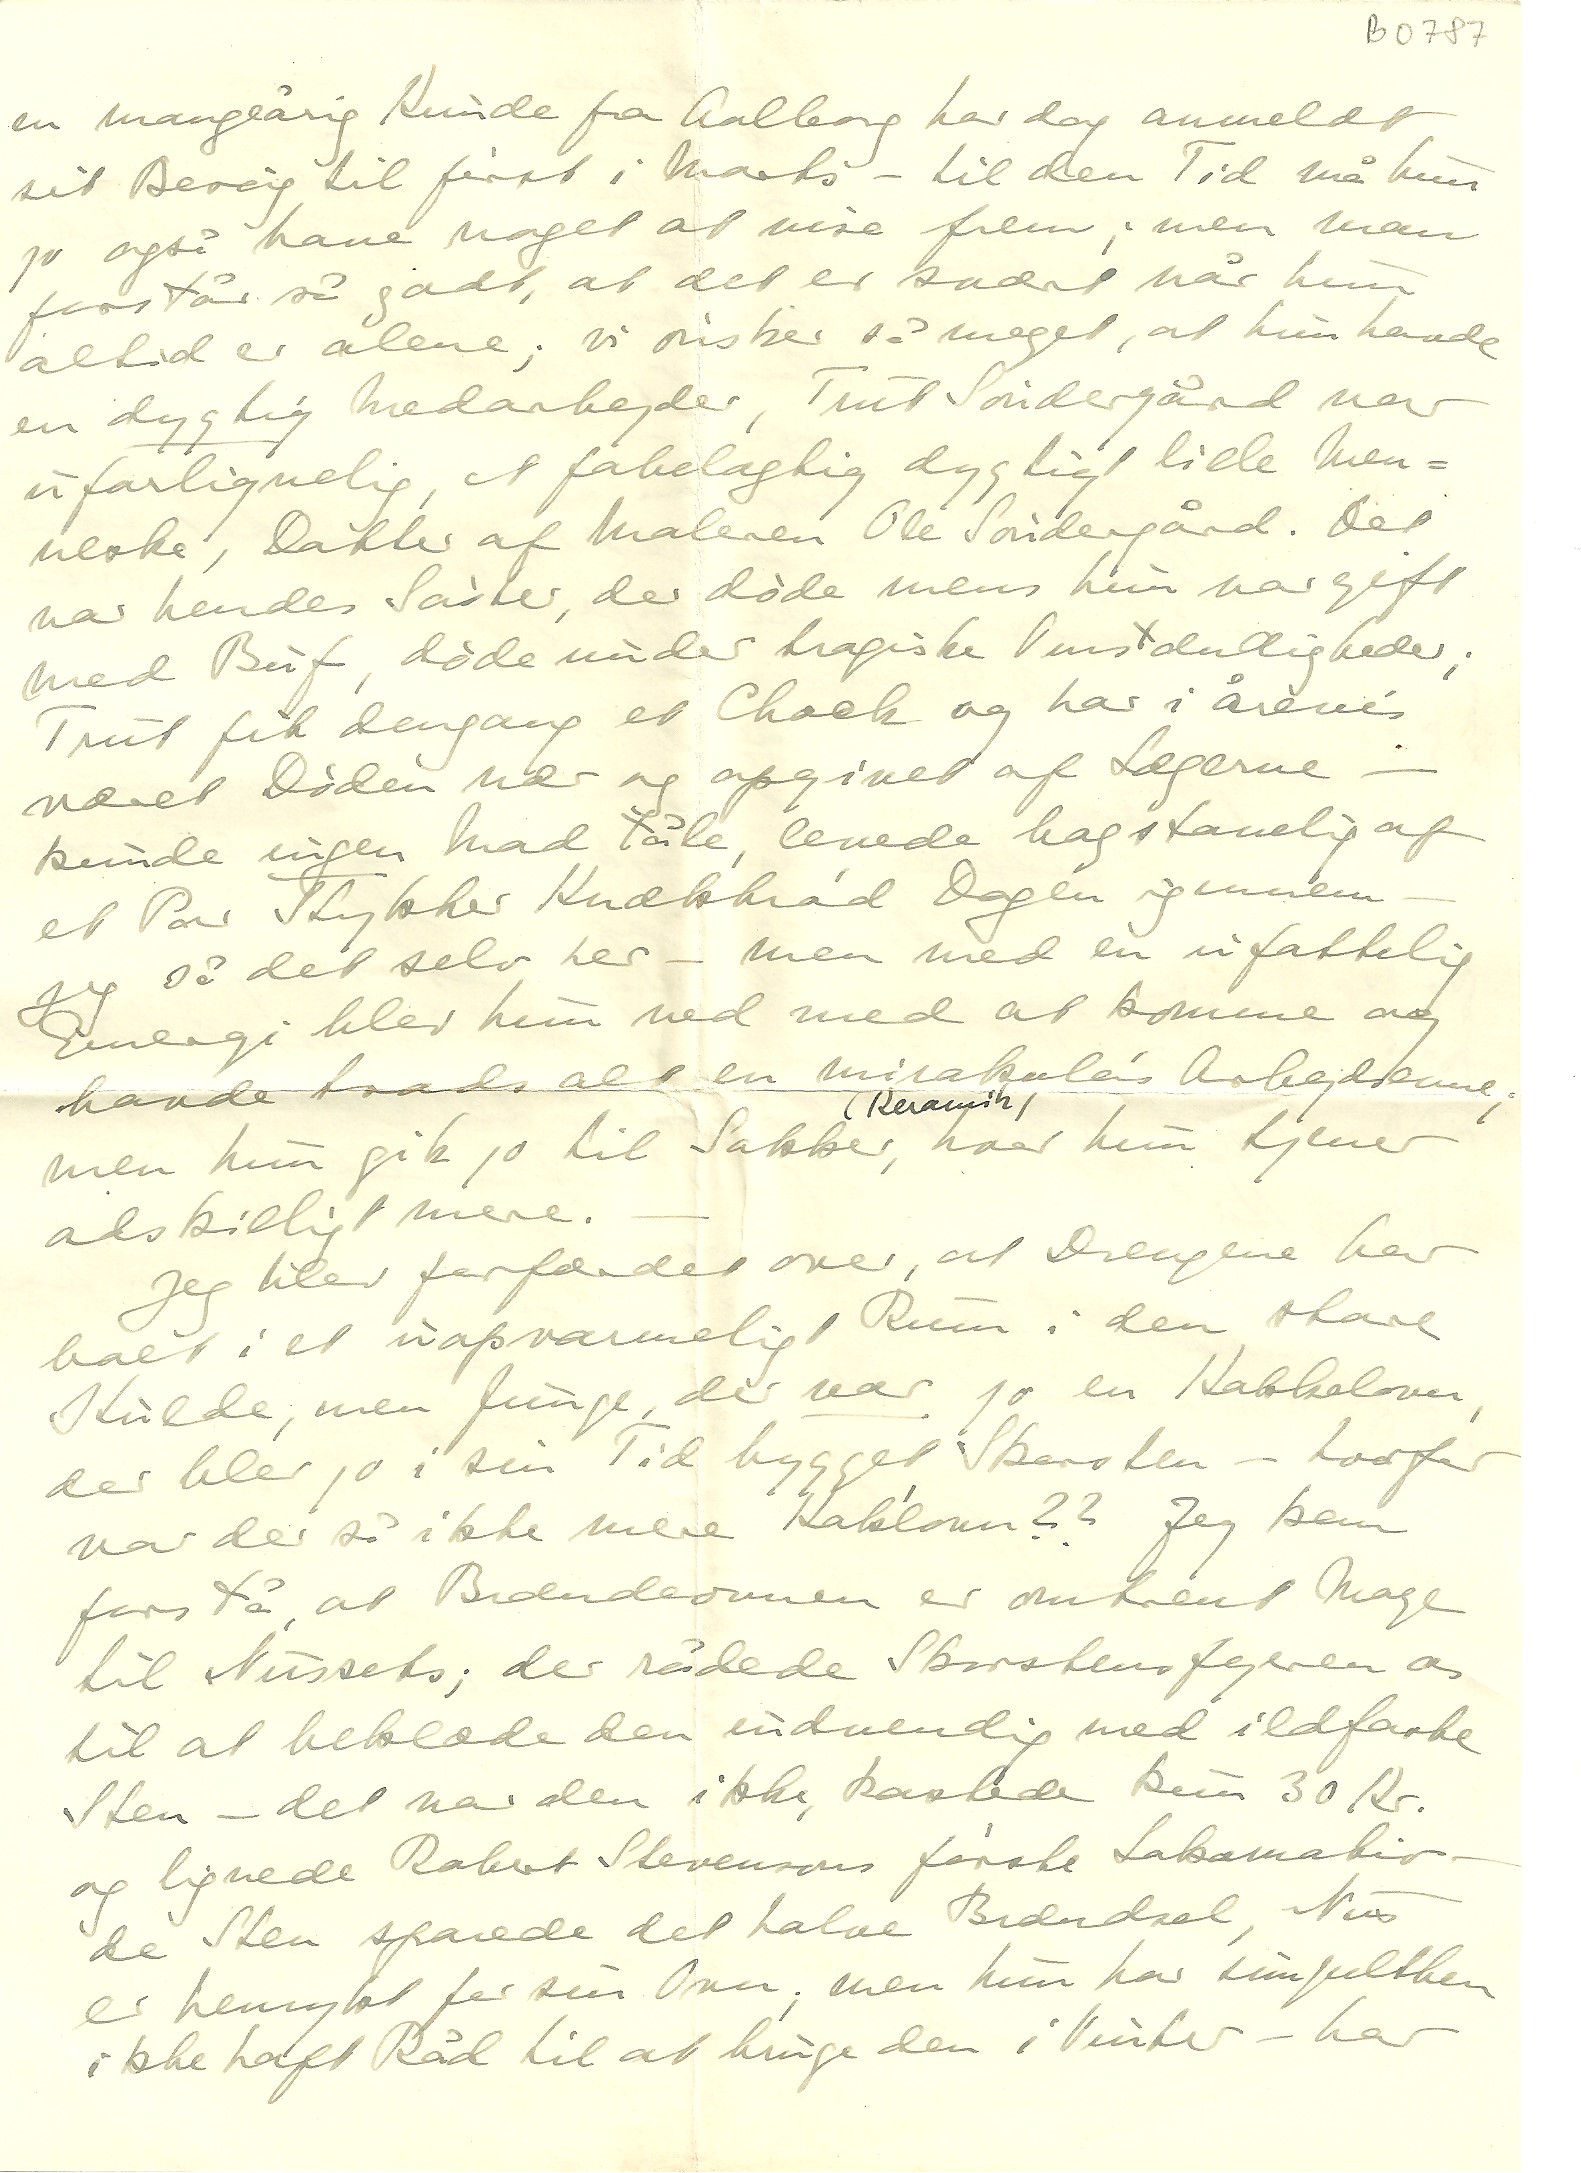 B0787
en mangeårig Kunde fra Aalborg har dog anmeldt
sit Besøg til først i Marts – til den Tid må hun
jo også have noget at vise frem; men man
forstår så godt, at det er svært når hun
altid er alene; vi ønsker så meget, at hun havde
en dygtig Medarbejder, Trut Søndergård var
uforlignelig, et fabelagtig dygtigt lille Men=
neske, Datter af Maleren Ole Søndergård. Det
var hendes Søster, der døde mens hun var gift
med Buf, døde under tragiske Omstændigheder;
Trut fik dengang et Chock og har i årevis
været Døden nær og opgivet af Lægerne –
kunde ingen Mad tåle, levede bogstavelig af
et Par Stykker Knækbrød Dagen igennem –
jeg så det selv her – men med en ufattelig
Energi blev hun ved med at komme og
havde trods alt en mirakuløs Arbejdsevne;
(Keramik)
men hun gik jo til Saxbo, hvor hun tjener
adskilligt mere. –
Jeg blev forfærdet over, at Drengene har
boet i et uopvarmeligt Rum i den stære
Kulde, men Junge, der var jo en Kakkelovn,
der blev jo i sin Tid bygget Skorsten – hvorfor
var der så ikke mere Kaklovn?? Jeg kan
forstå, at Brændeovnen er omtrent Mage
til Nussets; der rådede Skorstensfejeren os
til at beklæde den indvendig med ildfaste
Sten – det var den ikke, kostede kun 30 Kr.
og lignede Robert Stevensons første Lokomotiv –
de Sten sparede det halve Brændsel, Nus
er henrykt for sin Ovn; men hun har simpelthen
ikke haft Råd til at bruge den i Vinter – har